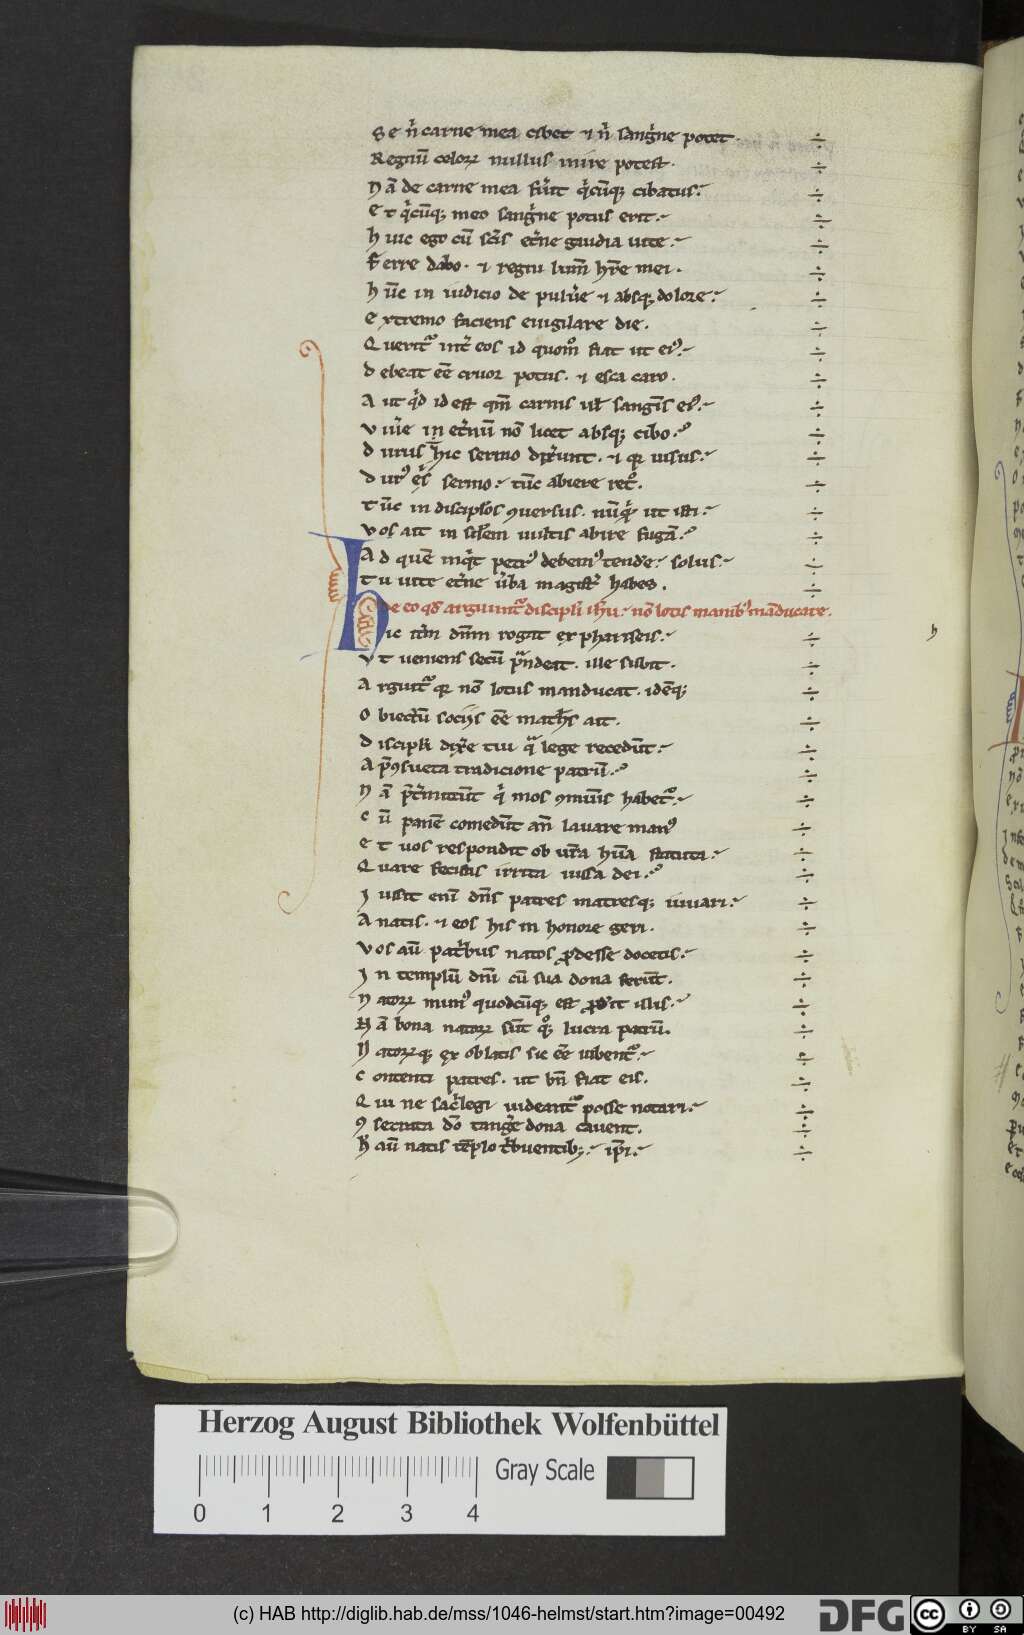 Se ñ carne mea cibet ⁊ ñ sangͥne potet
Regnū celoꝝ nullus inire potest.
Nā de carne mea fuĭt qͥcūqꝫ cibatus.
Et qͥcūqꝫ meo sangͥne potus erit.
huic ego cū scīs et̾ne gaudia uite.
ferre dabo. ⁊ regni lum̄ hr̄e mei.
hūc in iudicio de pulu̾e ⁊ absqꝫ dolore.
extremo faciens euigilare die.
Querit᷑ int̾ eos id quom̊ fiat ut ei᷒.
debeat eē cruor potus. ⁊ esca caro.
Aut qͥd id est qm̄ carnis ul̄ sangͥs ei᷒.
viu̾e in et̾nū nō licet absqꝫ cibo.
durus hic sermo dix̾unt. ⁊ qꝛ uisus.
dur᷒ sermo. tūc abiere ret̊.
tūc in discipl̾os ꝯuersus. nūqͥd ut isti.
vos ait in fugā.
Ad quē inqͥt petr᷒ debem᷒ tend̾e. solus.
tu uite et̾ne u̾ba magist̾ habes.
De eo qd̄ arguunt᷑ discipl̾i ih̄u. nō lotis manib᷒ māducare.
hic it̾m dn̄m rogat ex phariseis.
vt ueniens secū prͣndeat. ille subit.
Arguit᷑ qꝛ nō lotus manducat. idēqꝫ
obiectū socijs eē math̾s ait.
discipl̾i dix̾e tui qͣ lege recedūt.
A p̄ꝯsueta tradicione patrū.
Nā p̄t̾mittūt qͥ mos ꝯmuis habet᷑.
cū panē comedūt an̄ lauare man᷒
et vos respondit ob ur̄a hūa statuta.
Quare fecistis irrita iussa dei.
Iussit enī dn̄s patres matresqꝫ iuuari.
A natis. ⁊ eos his in honore geri.
vos aū pat̾bus natos ꝓdesse docetis.
In templū dn̄i cū sua dona ferūt.
Natoꝝ mun᷒ quodcūqꝫ est ꝓd̾it illis.
Nā bona natoꝝ sūt qꝫ lucra patrū.
Natoꝝqꝫ ex oblatis sic eē iubent᷑.
contenti patres. ut bn̄ fiat eis.
Qui ne sac̾legi uideant᷑ posse notari.
ꝯsecrata dō tang̾e dona cauent.
h̾ aū natis tēplo t̾buentibꝫ. ip̄i.
h
Herzog August Bibliothek Wolfenbüttel
0 1 2 3 4
Gray Scale
(c) HAB http://diglib.hab.de/mss/1046-helmst/start.htm?image=00492
DFG
cc BY SA